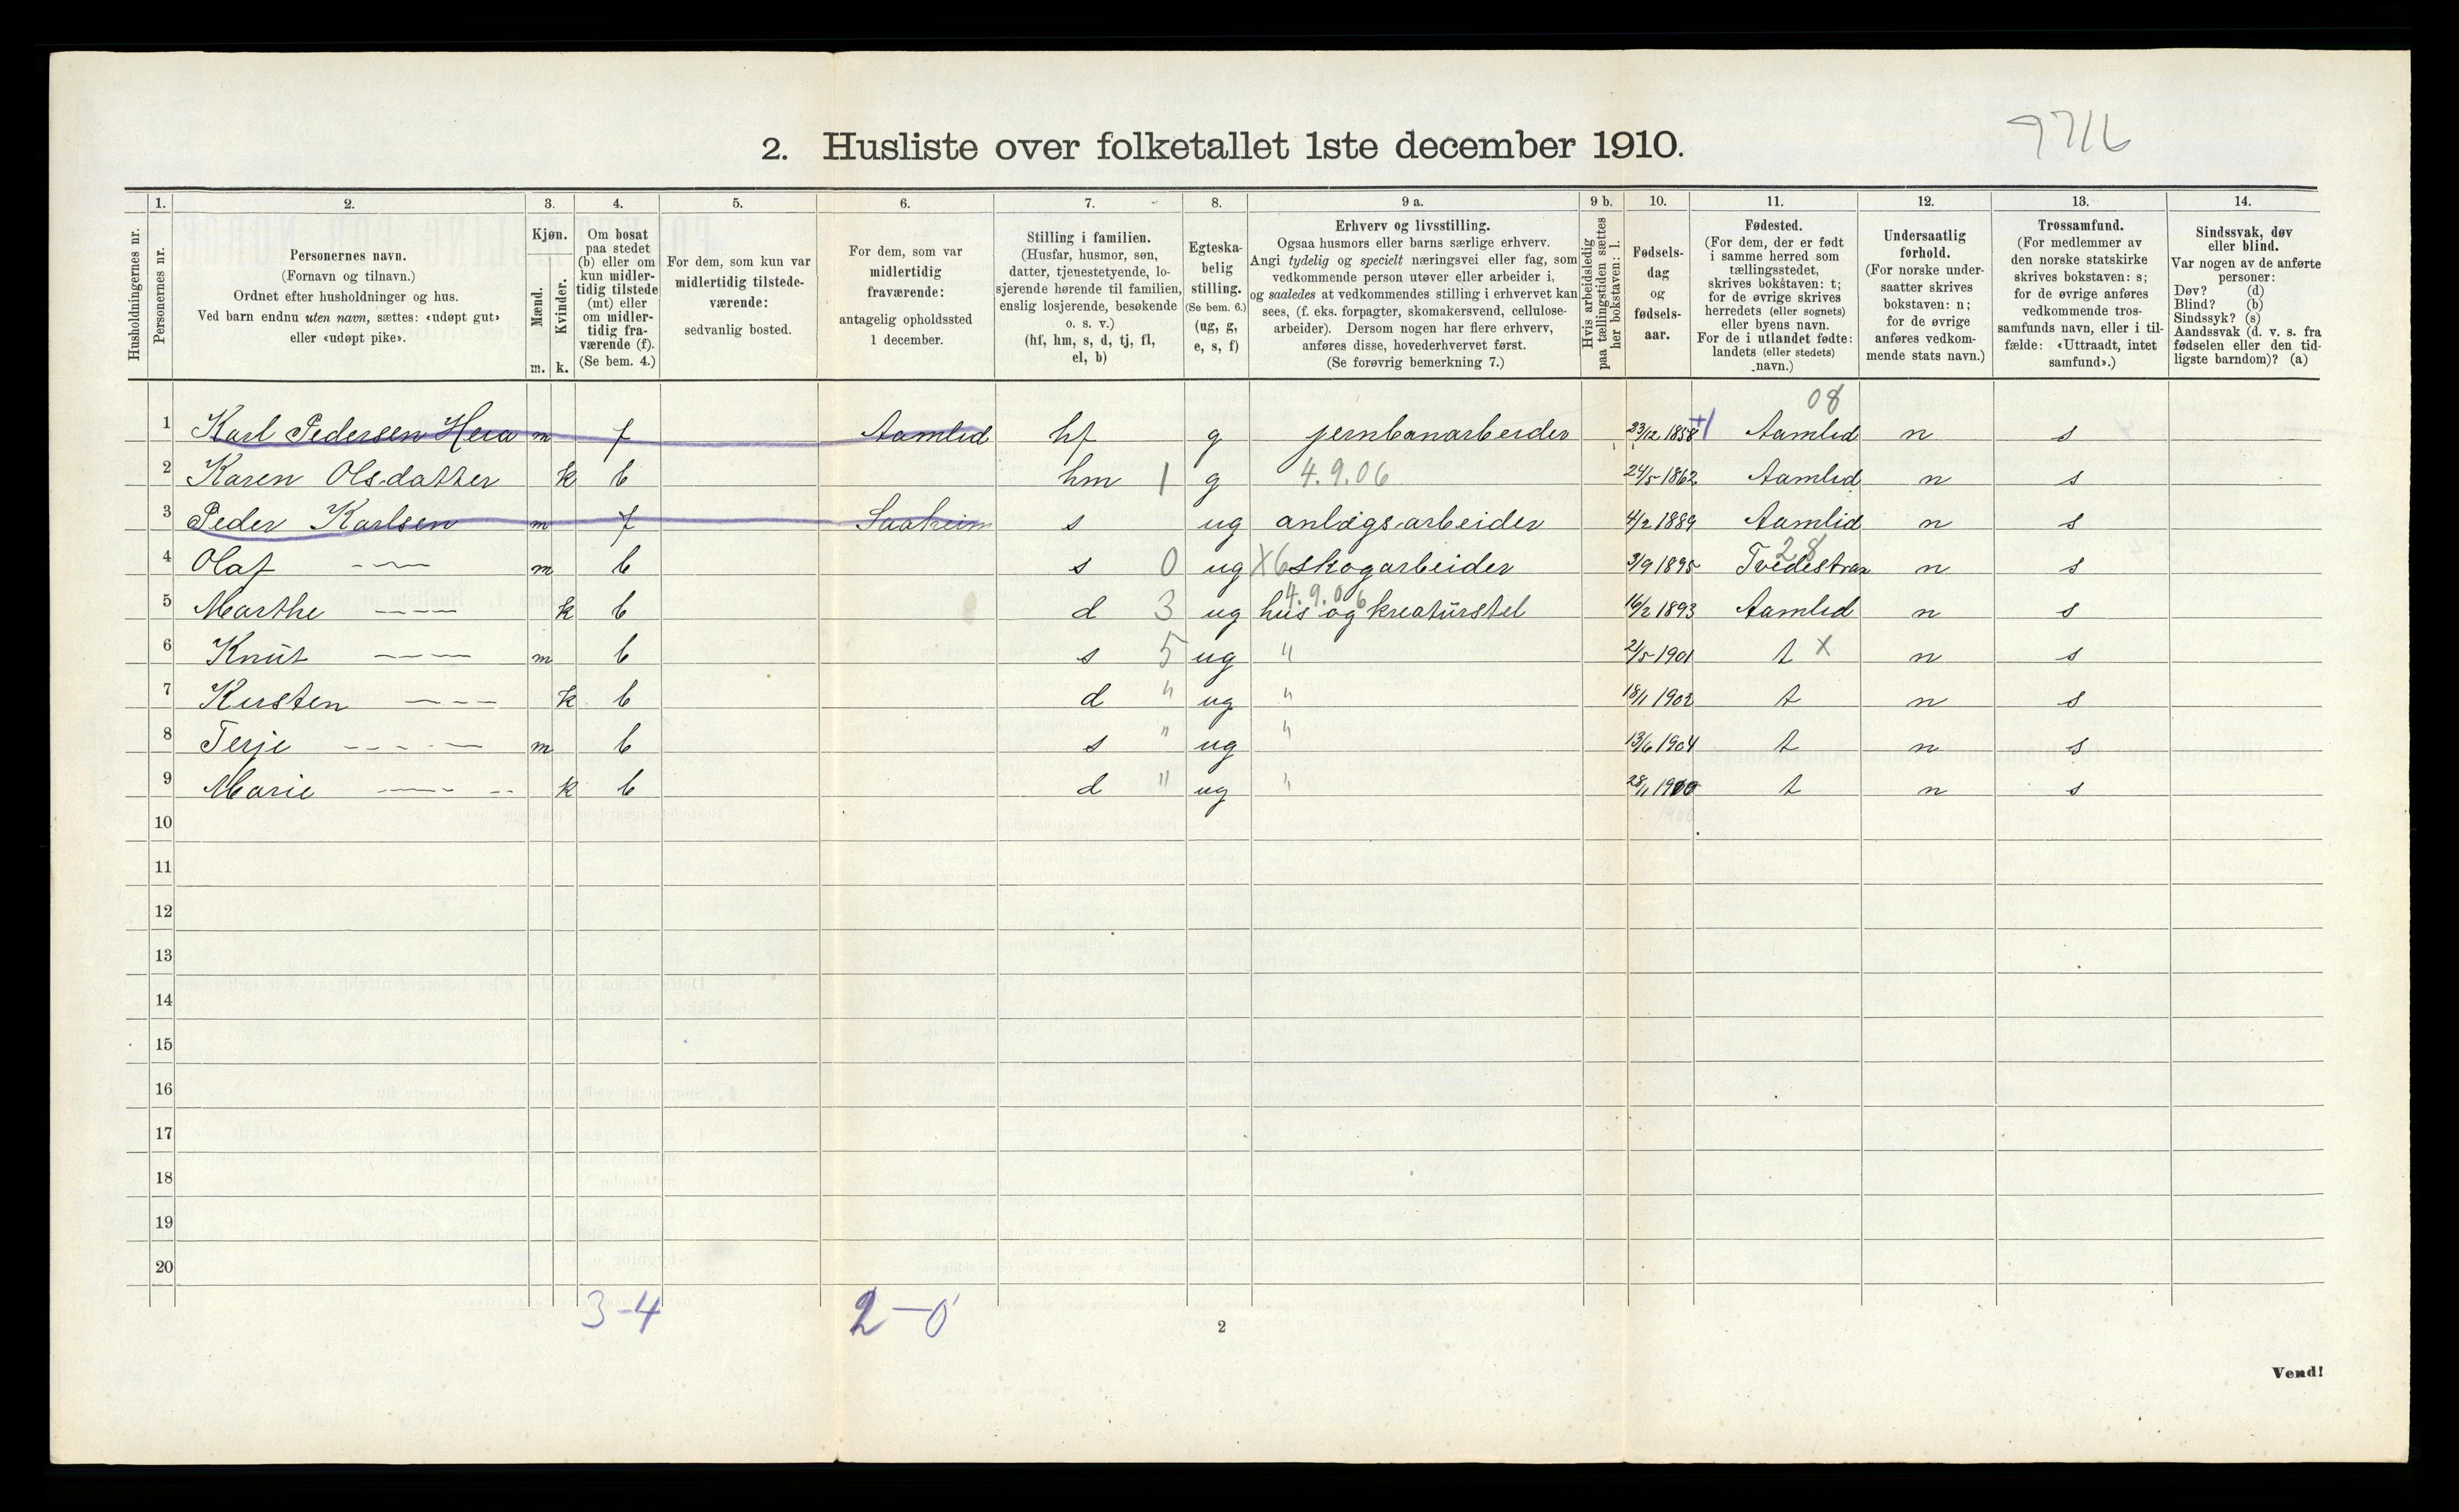 9716
2. Husliste over folketallet 1ste december 1910.
Husholdningernes nr.
1. Personernes nr.
2. Personernes navn. (Fornavn og tilnavn.) Ordnet efter husholdninger og hus. Ved barn endnu uten navn, sættes: «udøpt gut» eller «udøpt pike».
3. Kjøn. Mænd. m. Kvinder. k.
4. Om bosat paa stedet (b) eller om kun midlertidig tilstede (mt) eller om midlertidig fraværende (f). (Se bem. 4.)
5. For dem, som kun var midlertidig tilstedeværende: sedvanlig bosted.
6. For dem, som var midlertidig fraværende: antagelig opholdssted 1 december.
7. Stilling i familien. (Husfar, husmor, søn, datter, tjenestetyende, losjerende hørende til familien, enslig losjerende, besøkende o. s. v.) (hf, hm, s, d, tj, fl, el, b)
8. Egteskabelig stilling. (Se bem. 6.) (ug, g, e, s, f)
9 a. Erhverv og livsstilling. Ogsaa husmors eller barns særlige erhverv. Angi tydelig og specielt næringsvei eller fag, som vedkommende person utøver eller arbeider i, og saaledes at vedkommendes stilling i erhvervet kan sees, (f. eks. forpagter, skomakersvend, cellulosearbeider). Dersom nogen har flere erhverv, anføres disse, hovederhvervet først. (Se forøvrig bemerkning 7.)
9 b. Hvis arbeidsledig paa tællingstiden sættes her bokstaven: l.
10. Fødselsdag og fødselsaar.
11. Fødested. (For dem, der er født i samme herred som tællingsstedet, skrives bokstaven: t; for de øvrige skrives herredets (eller sognets) eller byens navn. For de i utlandet fødte: landets (eller stedets) navn.)
12. Undersaatlig forhold. (For norske undersaatter skrives bokstaven: n; for de øvrige anføres vedkommende stats navn.)
13. Trossamfund. (For medlemmer av den norske statskirke skrives bokstaven: s; for de øvrige anføres vedkommende trossamfunds navn, eller i tilfælde: «Uttraadt, intet samfund».)
14. Sindssvak, døv eller blind. Var nogen av de anførte personer: Døv? (d) Blind? (b) Sindssyk? (s) Aandssvak (d. v. s. fra fødselen eller den tidligste barndom)? (a)
08
1 Karl Pedersen Hera m f Aamlid hf g jernbanarbeider 23/12 1858 +1 Aamlid n s
2 Karen Olsdatter k b hm 1 g 4.9.06 24/5 1862 Aamlid n s
3 Peder Karlsen m f Saaheim s ug anlægsarbeider 4/2 1889 Aamlid n s
28
4 Olaf -~- m b s 0 ug X6 skogarbeider 3/9 1895 Tvedestran n s
4.9.06
5 Marthe ---- k b d 3 ug hus og kreaturstel 16/2 1893 Aamlid n s
6 Knut ---- m b s 5 ug " 2/5 1901 t X n s
7 Kirsten ---- k b d " ug " 18/1 1902 t n s
8 Terje ---- m b s " ug " 13/6 1904 t n s
9 Marie ---- k b d " ug " 28/1 1900 t n s
1900
10
11
12
13
14
15
16
17
18
19
20
3-4 2-0
2
Vend!